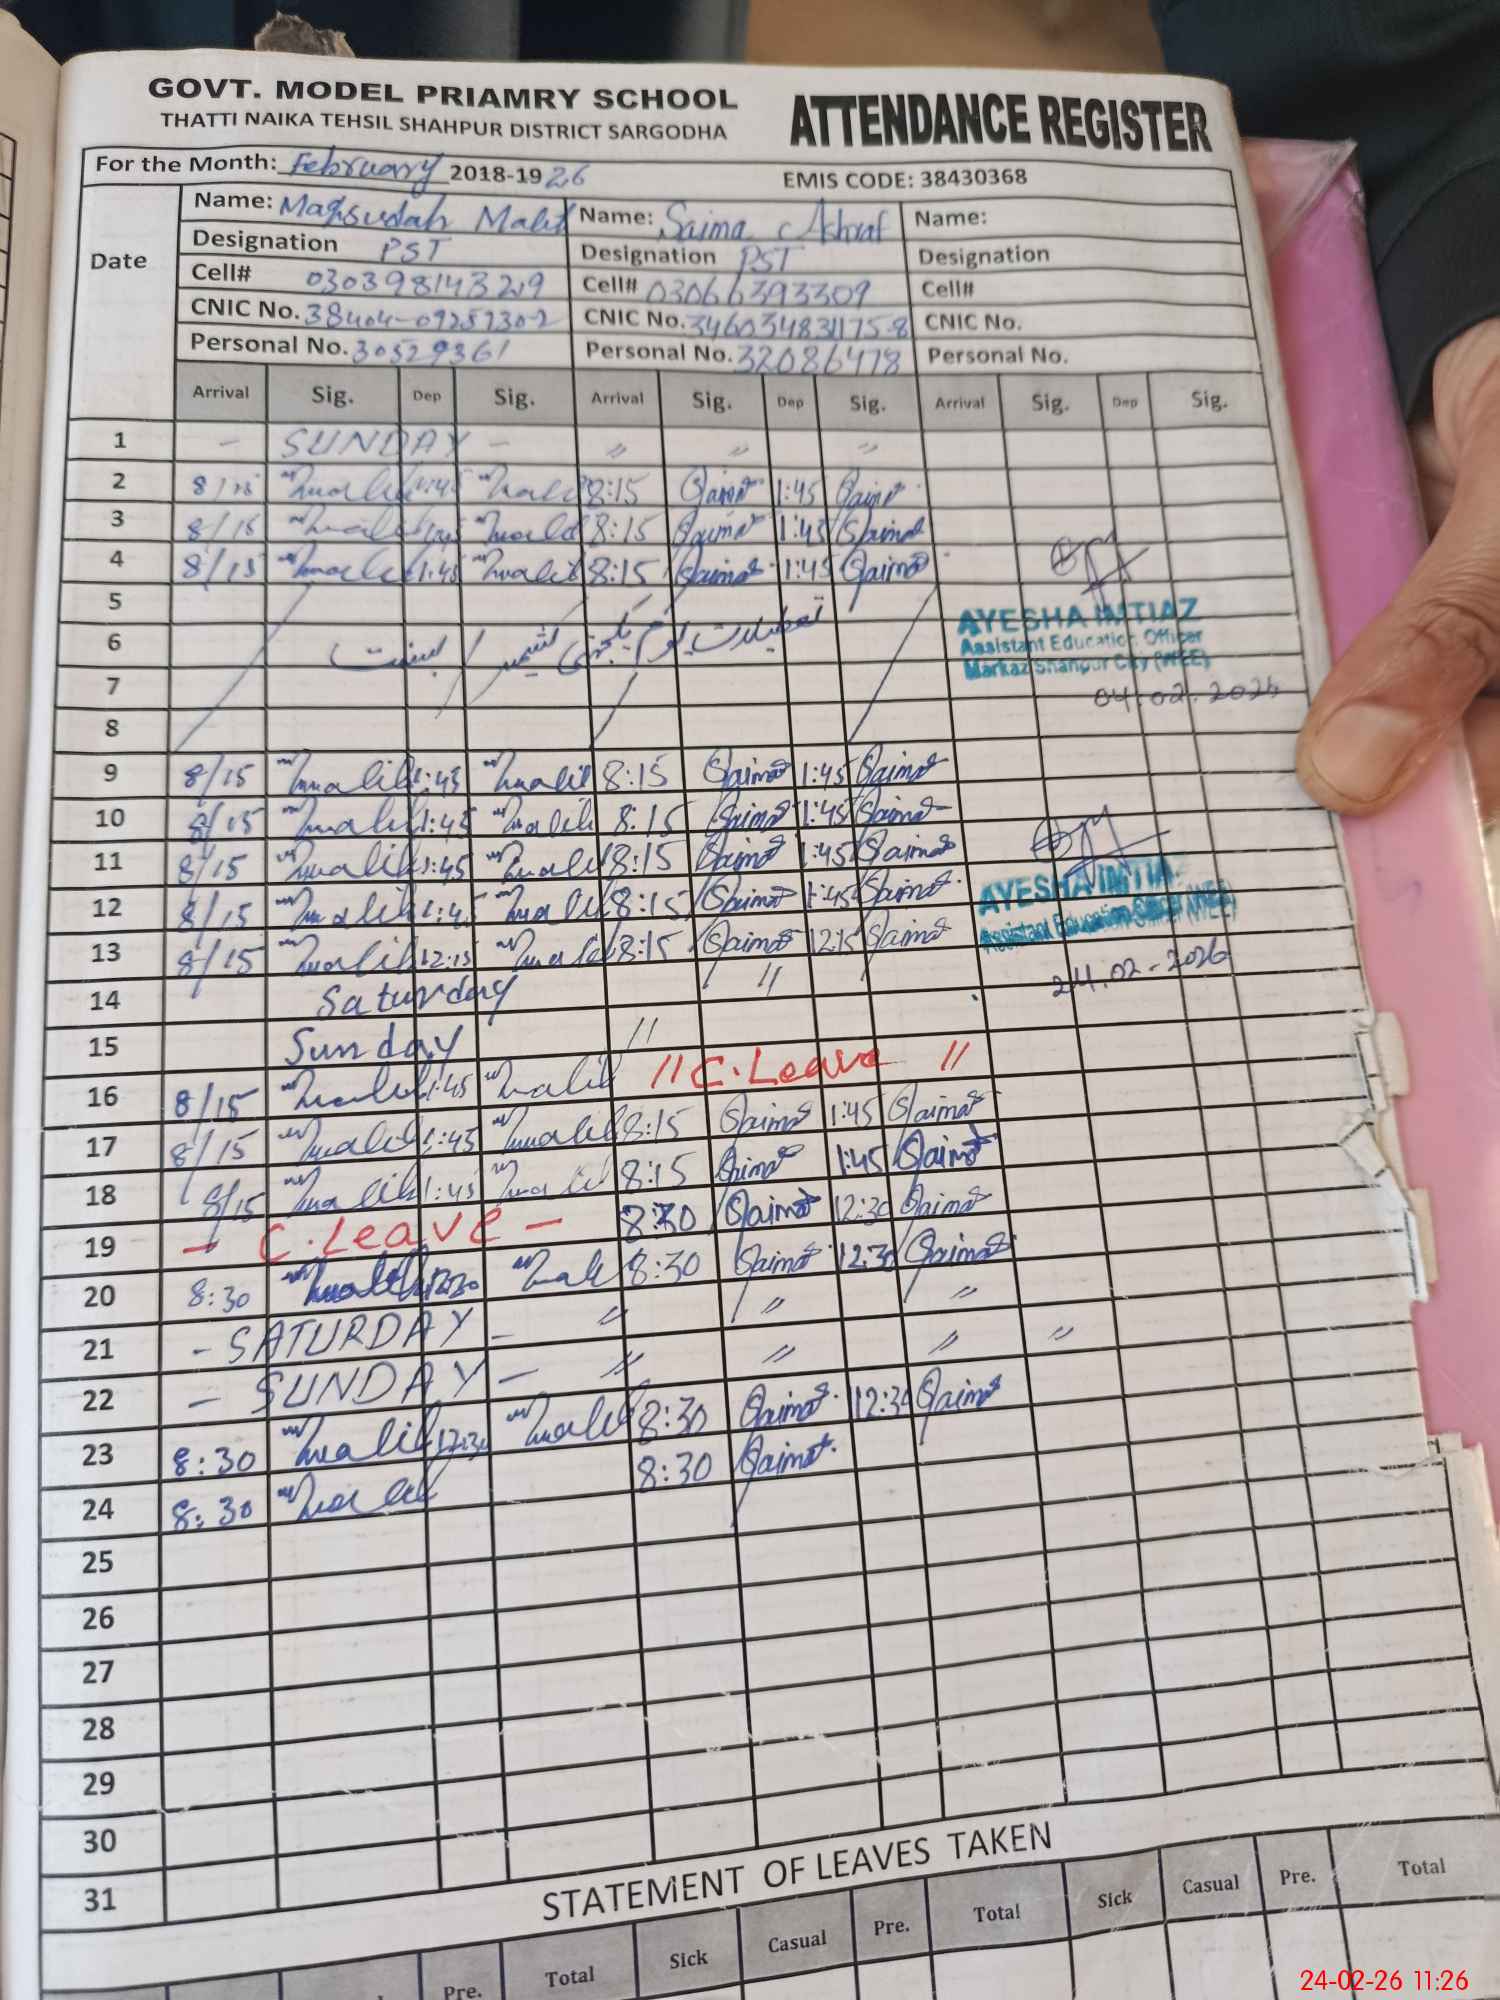 GOVT. MODEL PRIAMRY SCHOOL
THATTI NAIKA TEHSIL SHAHPUR DISTRICT SARGODHA
ATTENDANCE REGISTER
For the Month: February 2018-19 26 EMIS CODE: 38430368
Date
Name: Maqsudah Malik Name: Saima Ashraf Name:
Designation PST Designation PST Designation
Cell# 03039814329 Cell# 03066393309 Cell#
CNIC No. 38404-0925730-2 CNIC No. 3460348311758 CNIC No.
Personal No. 30529361 Personal No. 32086478 Personal No.
Arrival Sig. Dep Sig. Arrival Sig. Dep Sig. Arrival Sig. Dep Sig.
1 - SUNDAY - " " "
2 8/15 Malik 1:45 Malik 8:15 Saima 1:45 Saima
3 8/15 Malik 1:45 Malik 8:15 Saima 1:45 Saima
4 8/15 Malik 1:45 Malik 8:15 Saima 1:45 Saima
5
6 تعطیلات یوم یکجہتی کشمیر / بسنت
7
8
AYESHA IMTIAZ
Assistant Education Officer
Markaz Shahpur City (WEE)
04.02.2026
9 8/15 Malik 1:45 Malik 8:15 Saima 1:45 Saima
10 8/15 Malik 1:45 Malik 8:15 Saima 1:45 Saima
11 8/15 Malik 1:45 Malik 8:15 Saima 1:45 Saima
12 8/15 Malik 1:45 Malik 8:15 Saima 1:45 Saima
13 8/15 Malik 12:15 Malik 8:15 Saima 12:15 Saima
AYESHA IMTIA
Assistant Education
24.02-2026
14 Saturday "
15 Sunday "
16 8/15 Malik 1:45 Malik " C.Leave "
17 8/15 Malik 1:45 Malik 8:15 Saima 1:45 Saima
18 8/15 Malik 1:45 Malik 8:15 Saima 1:45 Saima
19 - C.Leave - 8:30 Saima 12:30 Saima
20 8:30 Malik 12:30 Malik 8:30 Saima 12:30 Saima
21 - SATURDAY - " " "
22 - SUNDAY - " " " "
23 8:30 Malik 12:30 Malik 8:30 Saima 12:30 Saima
24 8:30 Malik 8:30 Saima
25
26
27
28
29
30
31
STATEMENT OF LEAVES TAKEN
Pre. Total Sick Casual Pre. Total Sick Casual Pre. Total
24-02-26 11:26